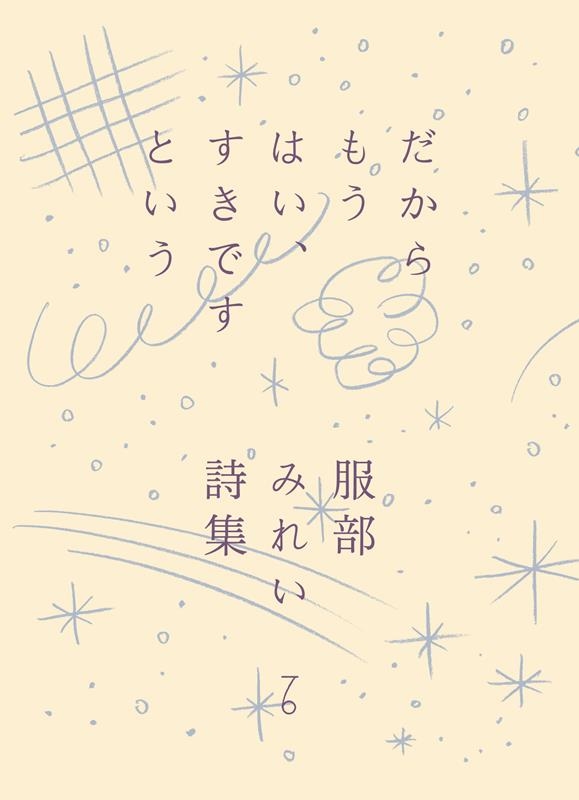 だから
もう
はい、
すきです
という
服部
みれい
詩集